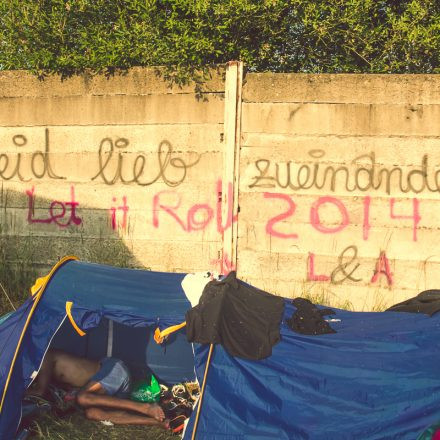 eid lieb zueinande
Let it Roll 2014
L&A